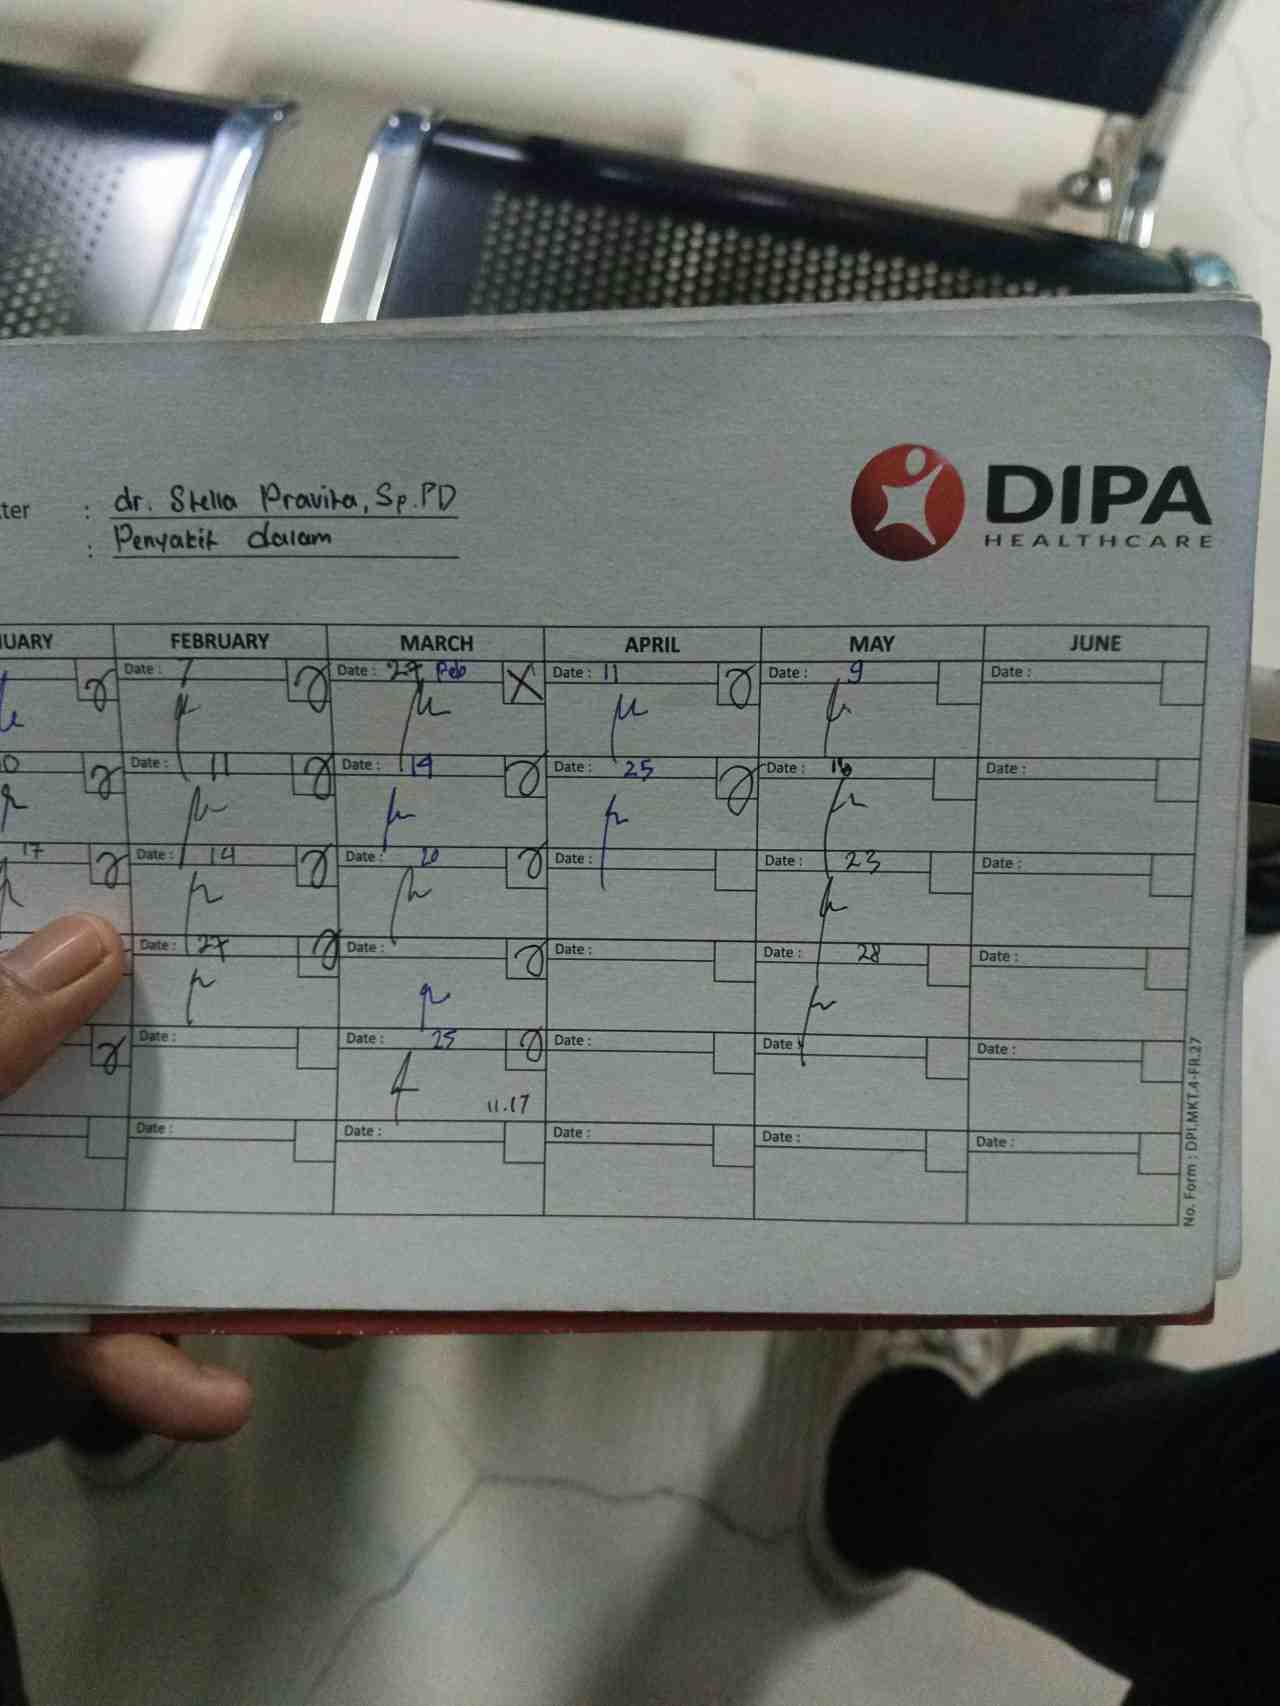 ter : dr. Stella Pravita, Sp.PD
: Penyakit dalam
DIPA
HEALTHCARE
UARY FEBRUARY MARCH APRIL MAY JUNE
Date : 7 Date : 27 Feb Date : 11 Date : 9 Date :
Date : 11 Date : 14 Date : 25 Date : 16 Date :
17 Date : 14 Date : 20 Date : Date : 23 Date :
Date : 27 Date : Date : Date : 28 Date :
Date : Date : 25 Date : Date : Date :
11.17
Date : Date : Date : Date : Date :
No. Form : DPI.MKT.4-FR.27